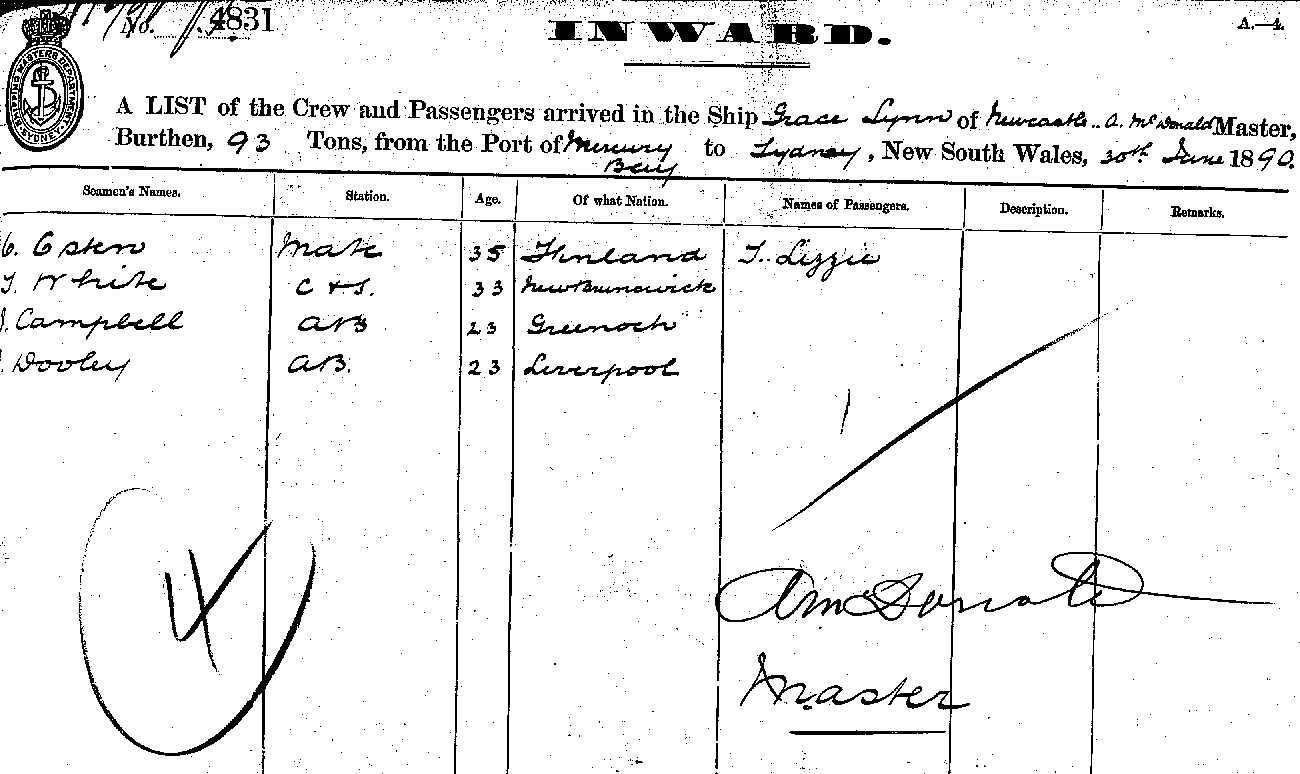 No. 4831
INWARD.
A.—4.
SHIPPING MASTERS DEPARTMENT SYDNEY
A LIST of the Crew and Passengers arrived in the Ship Grace Lynn of Newcastle.. A. McDonald Master,
Burthen, 93 Tons, from the Port of Mercury Bay to Sydney, New South Wales, 30th June 1890.
Seamen's Names. Station. Age. Of what Nation. Names of Passengers. Description. Remarks.
Mate 35 Finland T. Lizzie
White C & S. 33 New Brunswick
Campbell AB 23 Greenock
Dooley AB. 23 Liverpool
1
4
A McDonald
Master